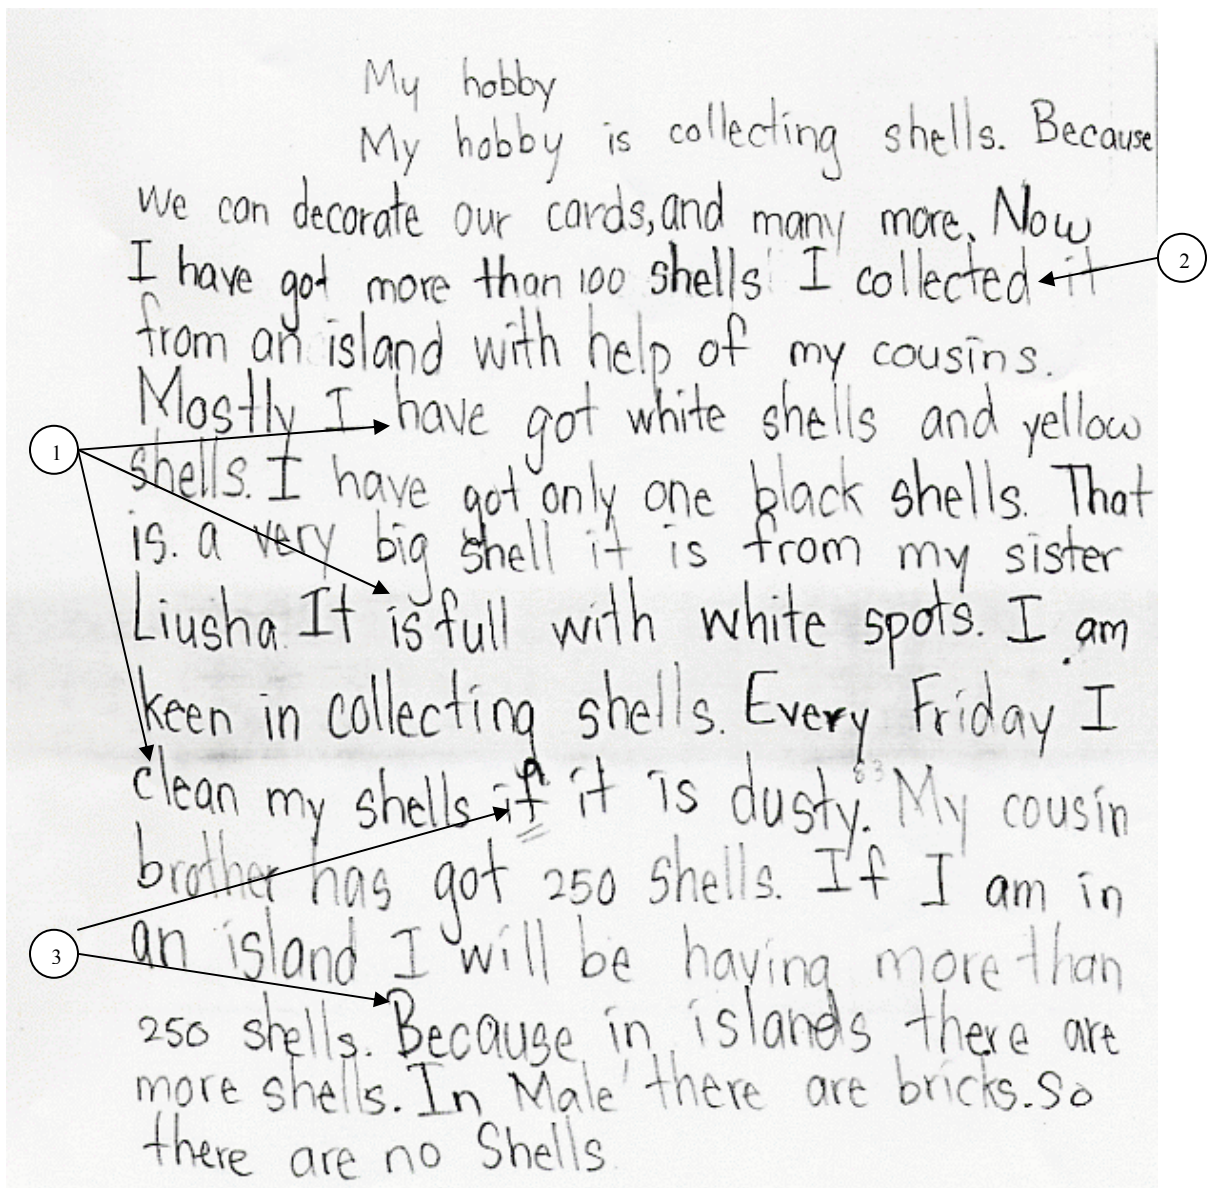 My hobby
My hobby is collecting shells. Because
we can decorate our cards, and many more. Now
I have got more than 100 shells. I collected it
2
from an island with help of my cousins.
Mostly I have got white shells and yellow
1
shells. I have got only one black shells. That
is. a very big shell it is from my sister
Liusha. It is full with white spots. I am
keen in collecting shells. Every Friday I
clean my shells if it is dusty. My cousin
brother has got 250 shells. If I am in
an island I will be having more than
3
250 shells. Because in islands there are
more shells. In Male' there are bricks. So
there are no Shells.